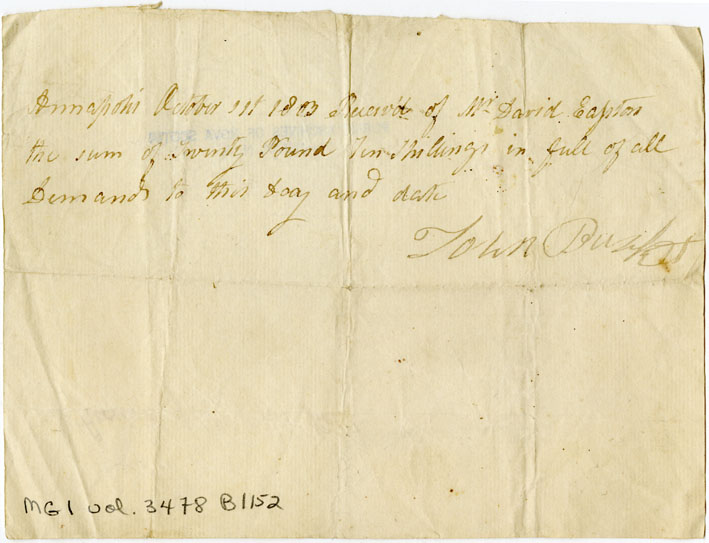 Annapolis October 1st 1803 Receivd of Mr David Eapson
the sum of Twenty Pound Ten Shillings in full of all
Demands to this Day and date
John
MG1 vol. 3478 B1152